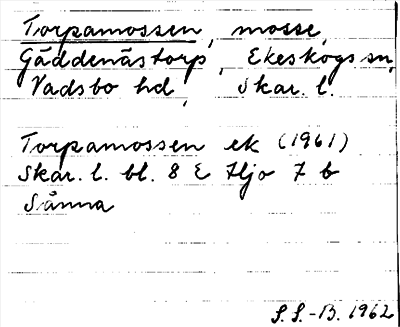 Torpamossen, mosse,
Gäddenästorp, Ekeskogs sn,
Vadsbo hd, Skar. l.
Torpamossen ek (1961)
Skar. l. bl. 8 E Hjo 7 b
Sänna
S. S.-B. 1962